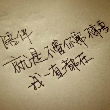 陪伴
就是不管你需不需要
我一直都在